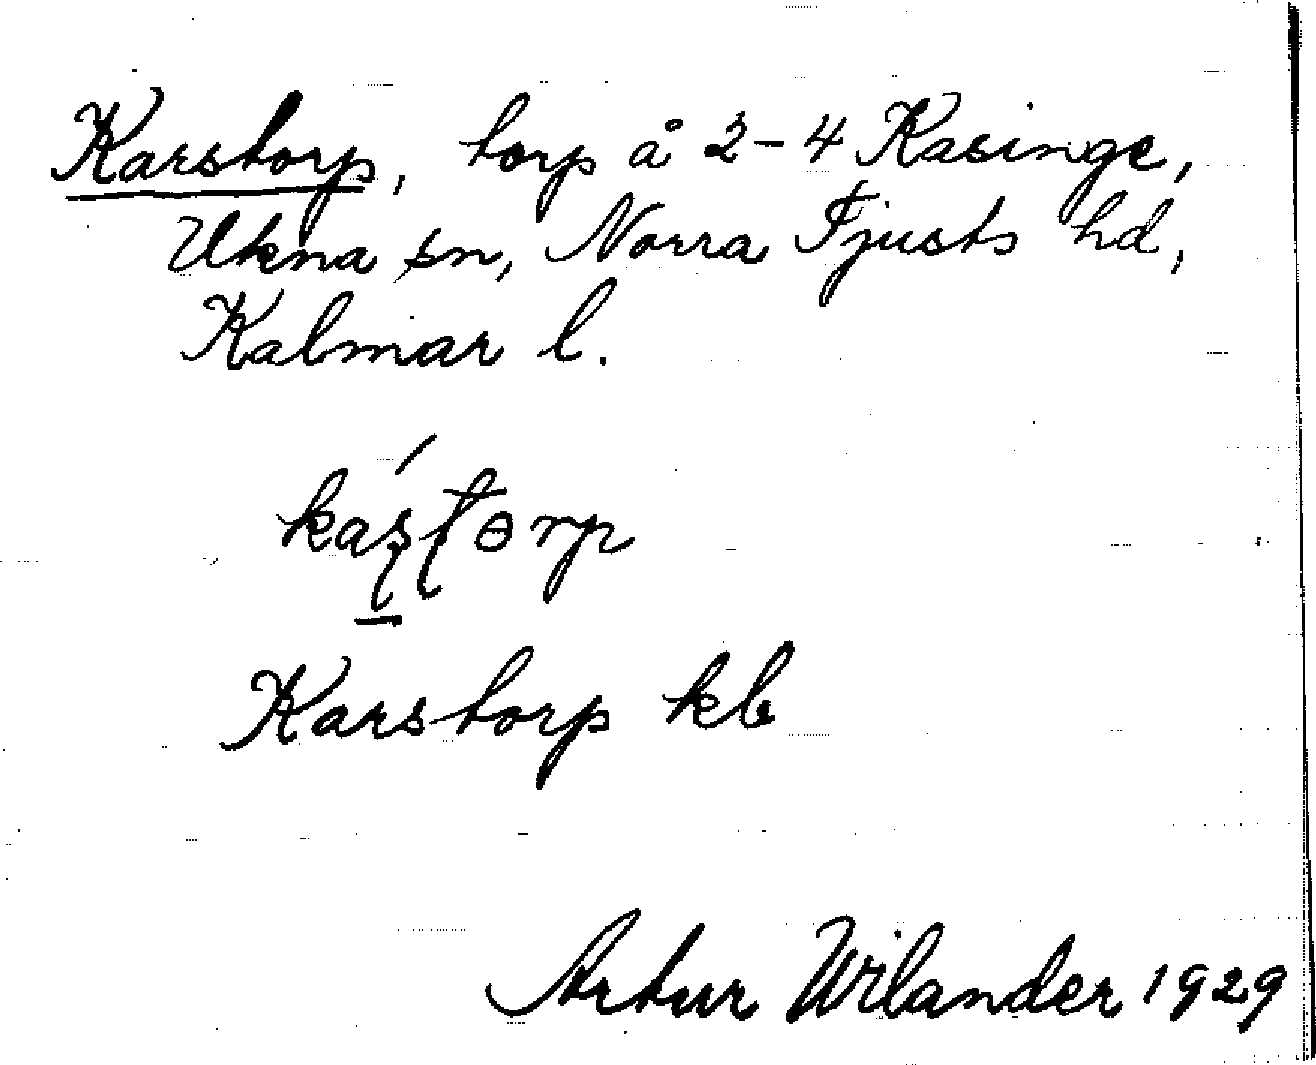 Karstorp, torp å 2-4 Kasinge,
Ukna sn, Norra Tjusts hd,
Kalmar l.
káʂʈɵrp
Karstorp kb
Artur Wilander 1929